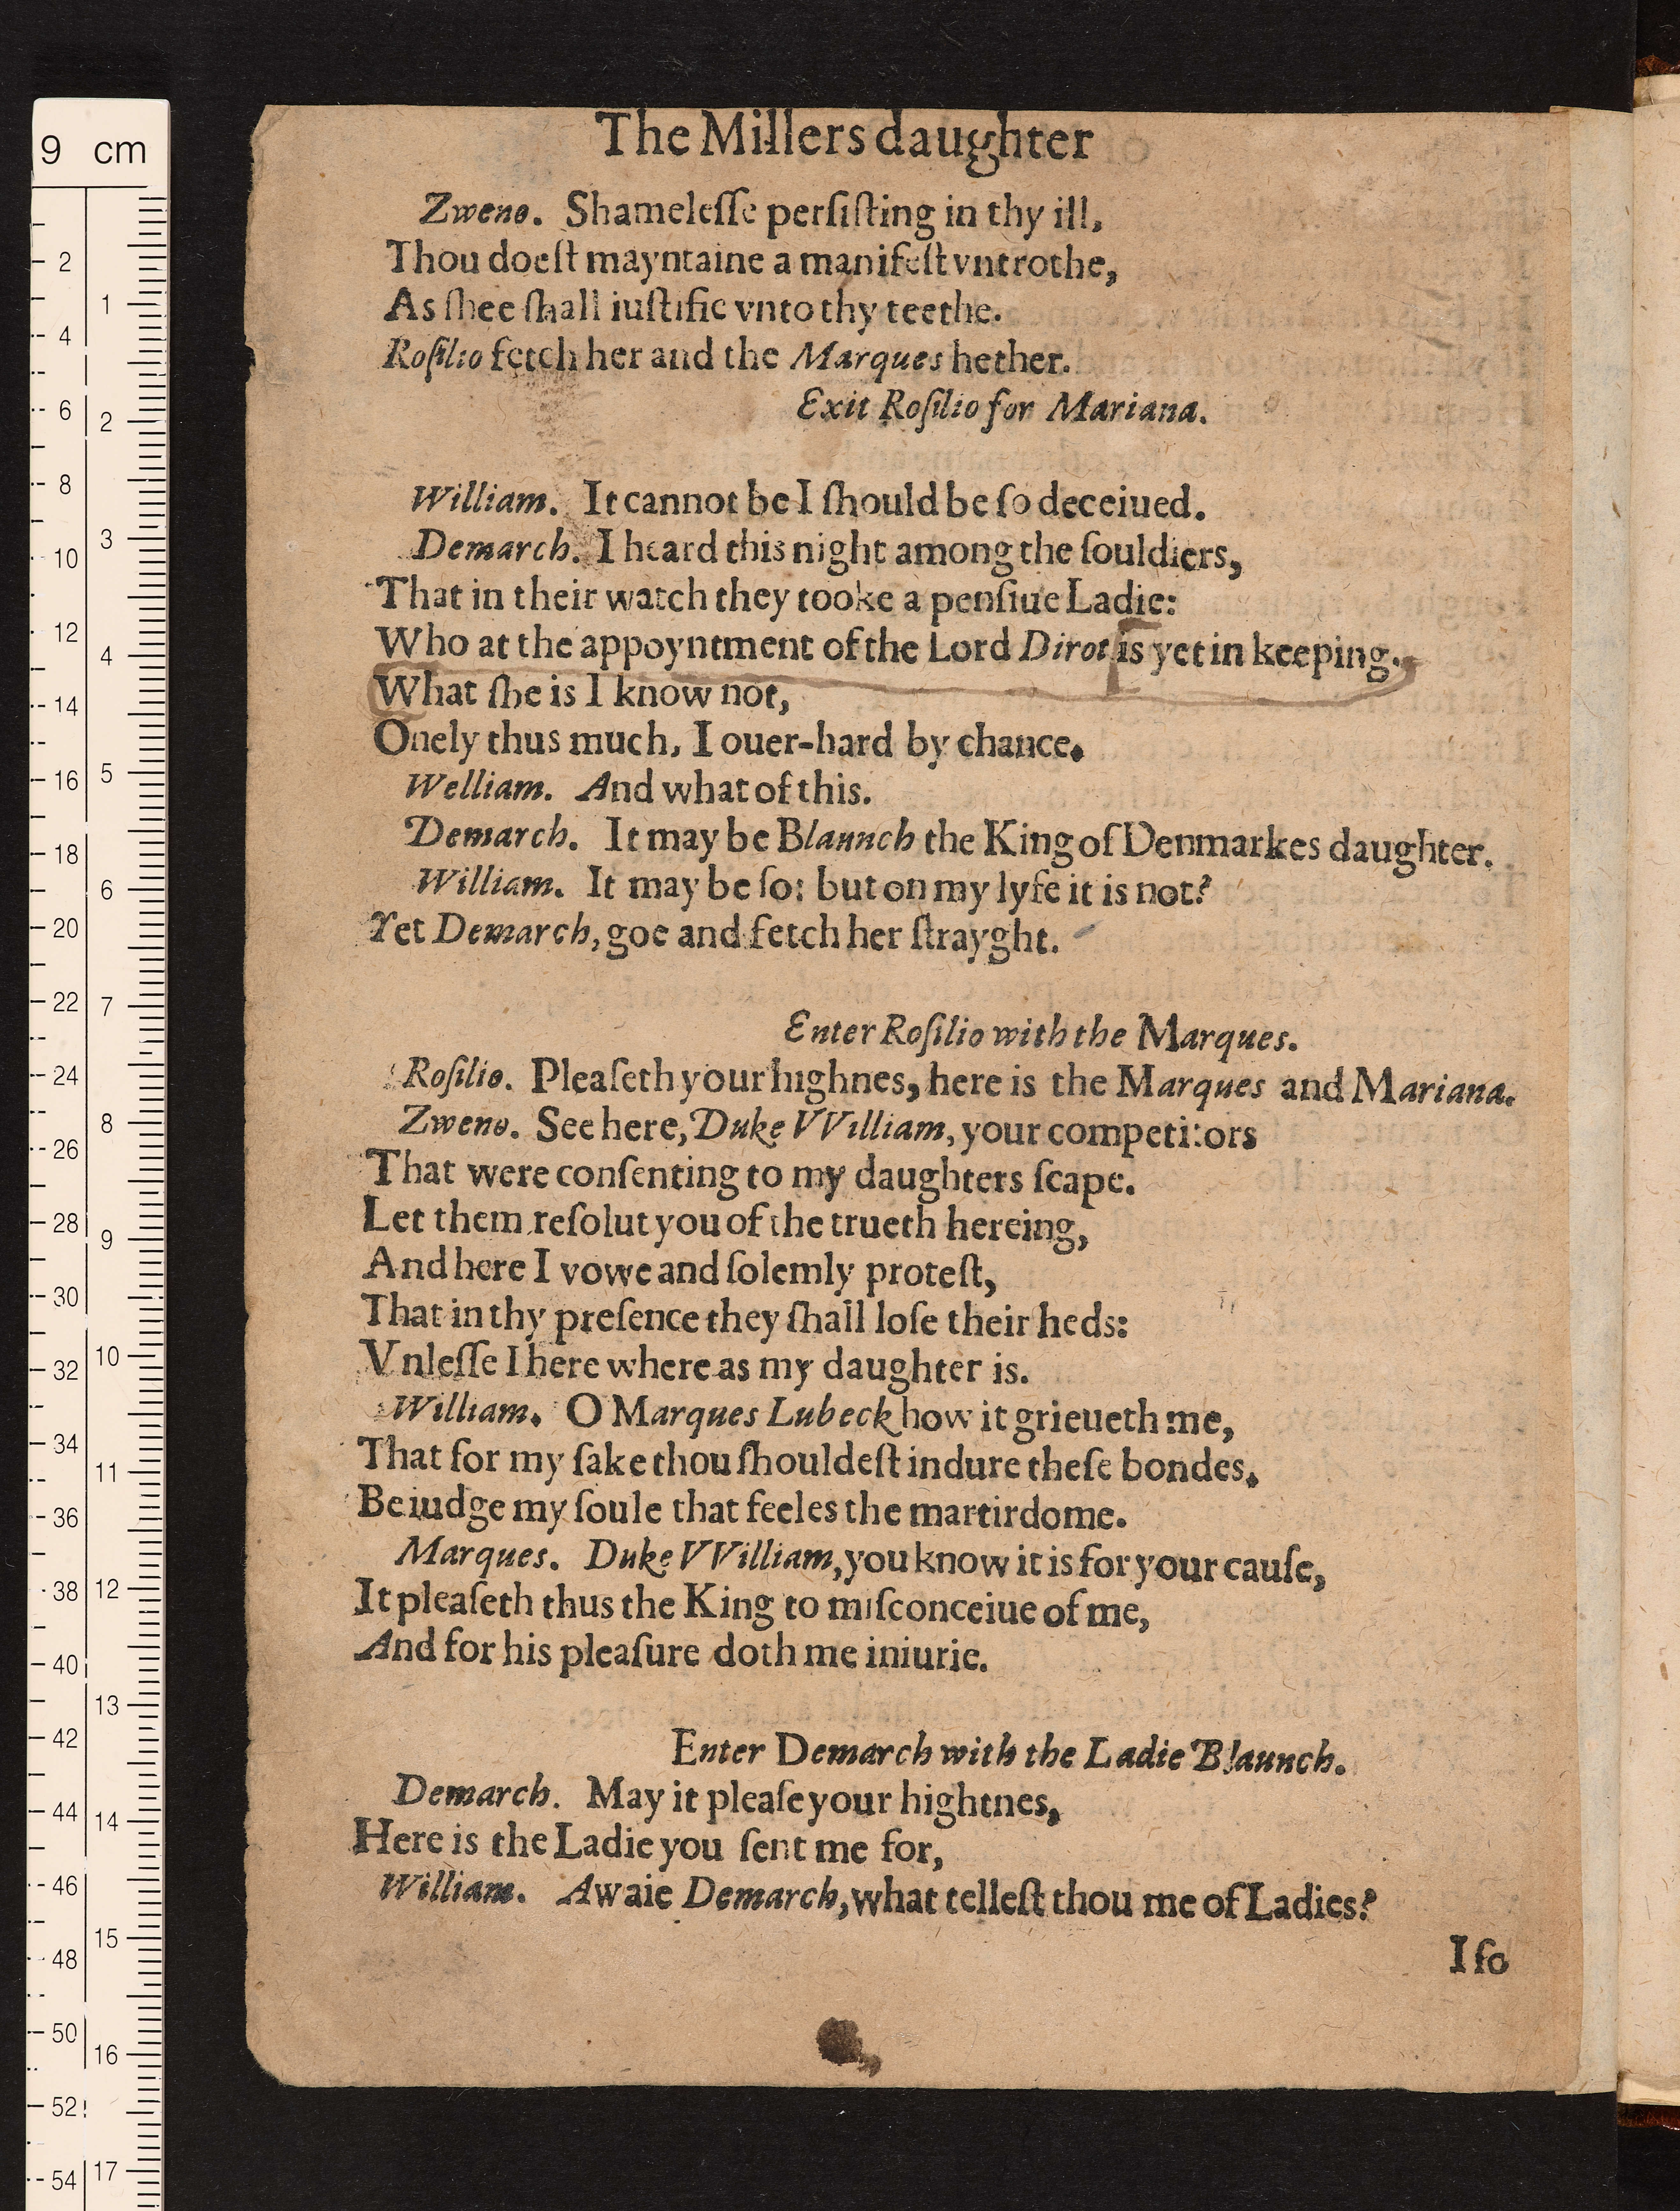 The Millers daughter
Zweno. Shamelesse persiſting in thy ill,
Thou doeſt mayntaine a manifeſt vntrothe,
As ſhee ſhall iuſtifie vnto thy teethe.
Roſilio fetch her and the Marques hether.
Exit Roſilio for Mariana.
William. It cannot be I ſhould be ſo deceiued.
Demarch. I heard this night among the ſouldiers,
That in their watch they tooke a penſiue Ladie:
Who at the appoyntment of the Lord Dirot is yet in keeping.
What ſhe is I know not,
Onely thus much, I ouer-hard by chance.
Welliam. And what of this.
Demarch. It may be Blaunch the King of Denmarkes daughter.
William. It may be ſo: but on my lyfe it is not?
Yet Demarch, goe and fetch her ſtrayght.
Enter Roſilio with the Marques.
Roſilio. Pleaſeth your highnes, here is the Marques and Mariana.
Zweno. See here, Duke VVilliam, your competitors
That were conſenting to my daughters ſcape.
Let them reſolut you of the trueth hereing,
And here I vowe and ſolemly proteſt,
That in thy preſence they ſhall loſe their heds:
Vnleſſe I here where as my daughter is.
William. O Marques Lubeck how it grieueth me,
That for my ſake thou ſhouldeſt indure theſe bondes,
Be iudge my ſoule that feeles the martirdome.
Marques. Duke VVilliam, you know it is for your cauſe,
It pleaſeth thus the King to miſconceiue of me,
And for his pleaſure doth me iniurie.
Enter Demarch with the Ladie Blaunch.
Demarch. May it pleaſe your hightnes,
Here is the Ladie you ſent me for,
William. Awaie Demarch, what telleſt thou me of Ladies?
I ſo
9 cm
2
1
4
6
2
8
10
3
12
4
14
16
5
18
20
6
22
7
24
26
8
28
9
30
32
10
34
11
36
38
12
40
13
42
44
14
46
48
15
50
16
52
54
17